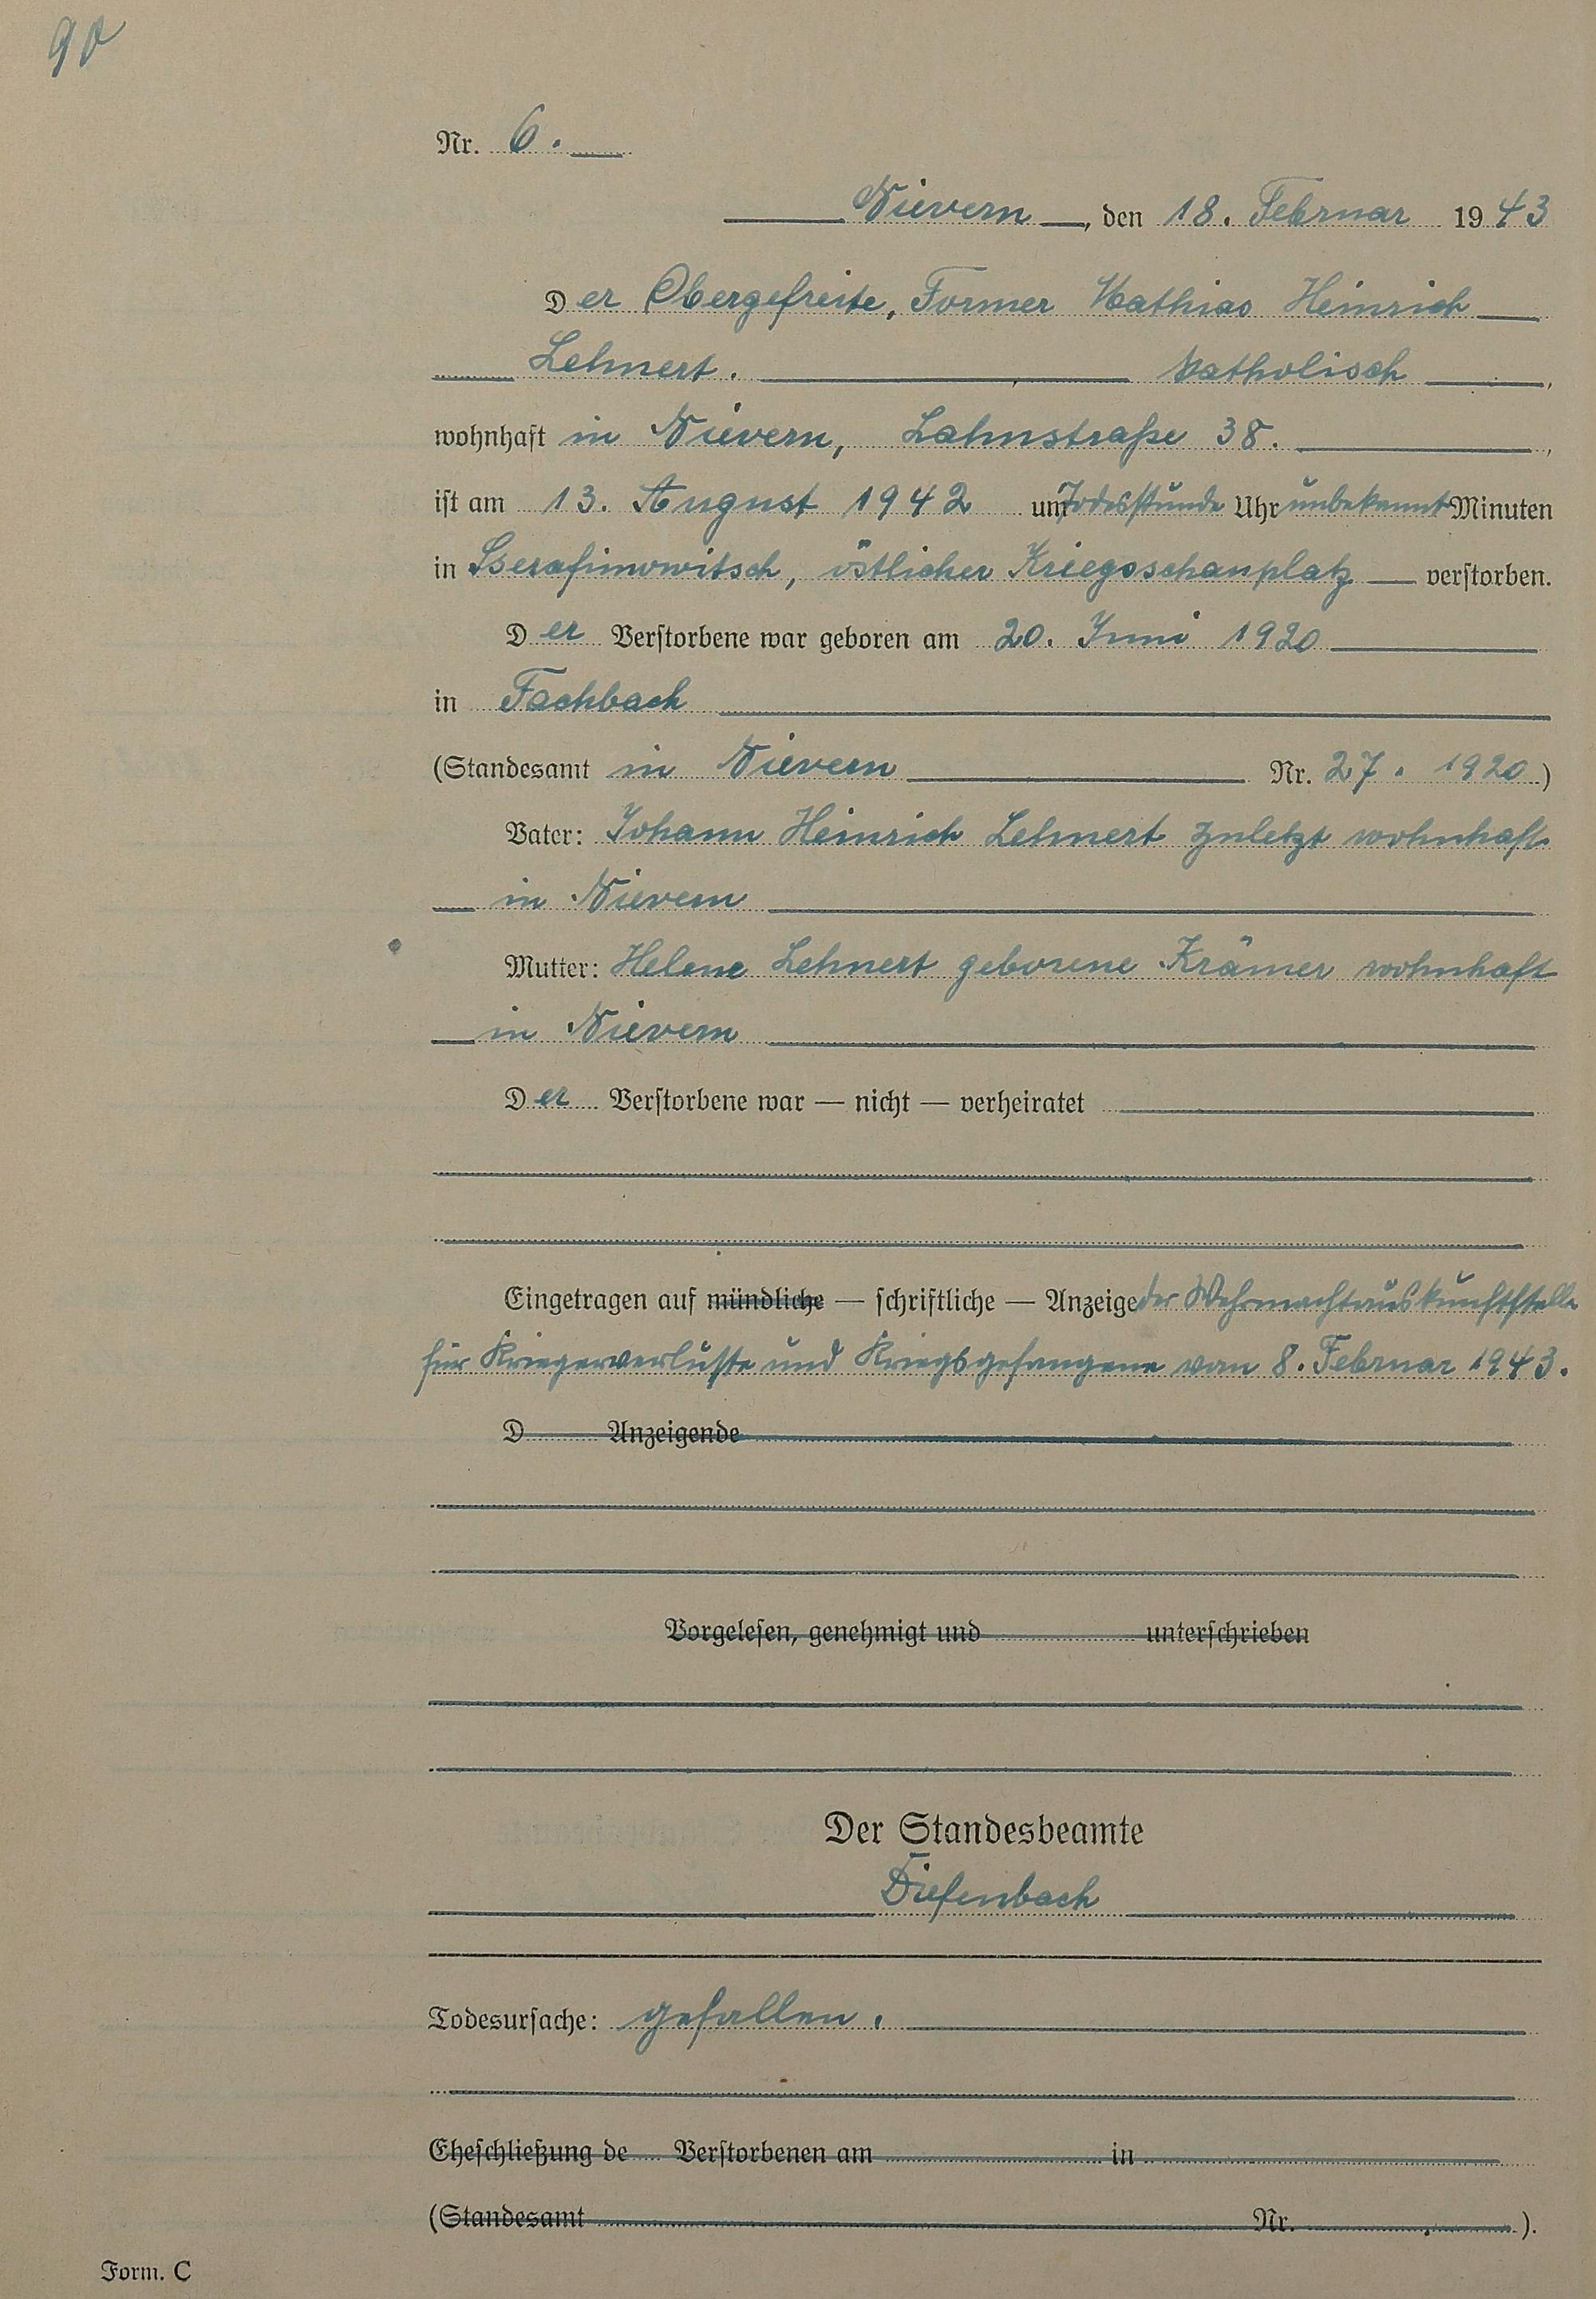 90
Nr. 6.
Nievern, den 18. Februar 1943
Der Obergefreite, Former Mathias Heinrich
Lehnert. katholisch,
wohnhaft in Nievern, Lahnstraße 38.,
ist am 13. August 1942 um Todesstunde Uhr unbekannt Minuten
in Sserafimowitsch, östlicher Kriegsschauplatz verstorben.
Der Verstorbene war geboren am 20. Juni 1920
in Fachbach
(Standesamt in Nievern Nr. 27. 1920)
Vater: Johann Heinrich Lehnert zuletzt wohnhaft
in Nievern
Mutter: Helene Lehnert geborene Krämer wohnhaft
in Nievern
Der Verstorbene war — nicht — verheiratet
Eingetragen auf mündliche — schriftliche — Anzeige der Wehrmachtauskunftstelle
für Kriegerverluste und Kriegsgefangene vom 8. Februar 1943.
D Anzeigende
Vorgelesen, genehmigt und unterschrieben
Der Standesbeamte
Diefenbach
Todesursache: gefallen.
Eheschließung de Verstorbenen am in
(Standesamt Nr. ).
Form. C